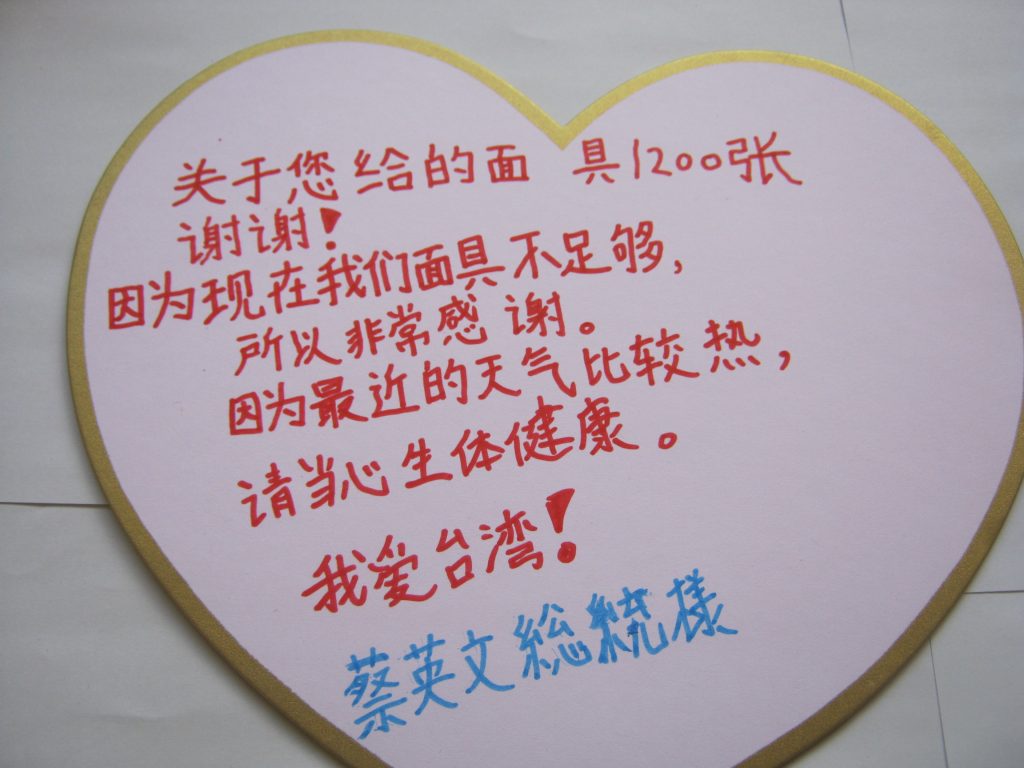 关于您给的面 具1200张
谢谢!
因为现在我们面具不足够,
所以非常感 谢。
因为最近的天气比较热,
请当心生体健康。
我爱台湾!
蔡英文総統様